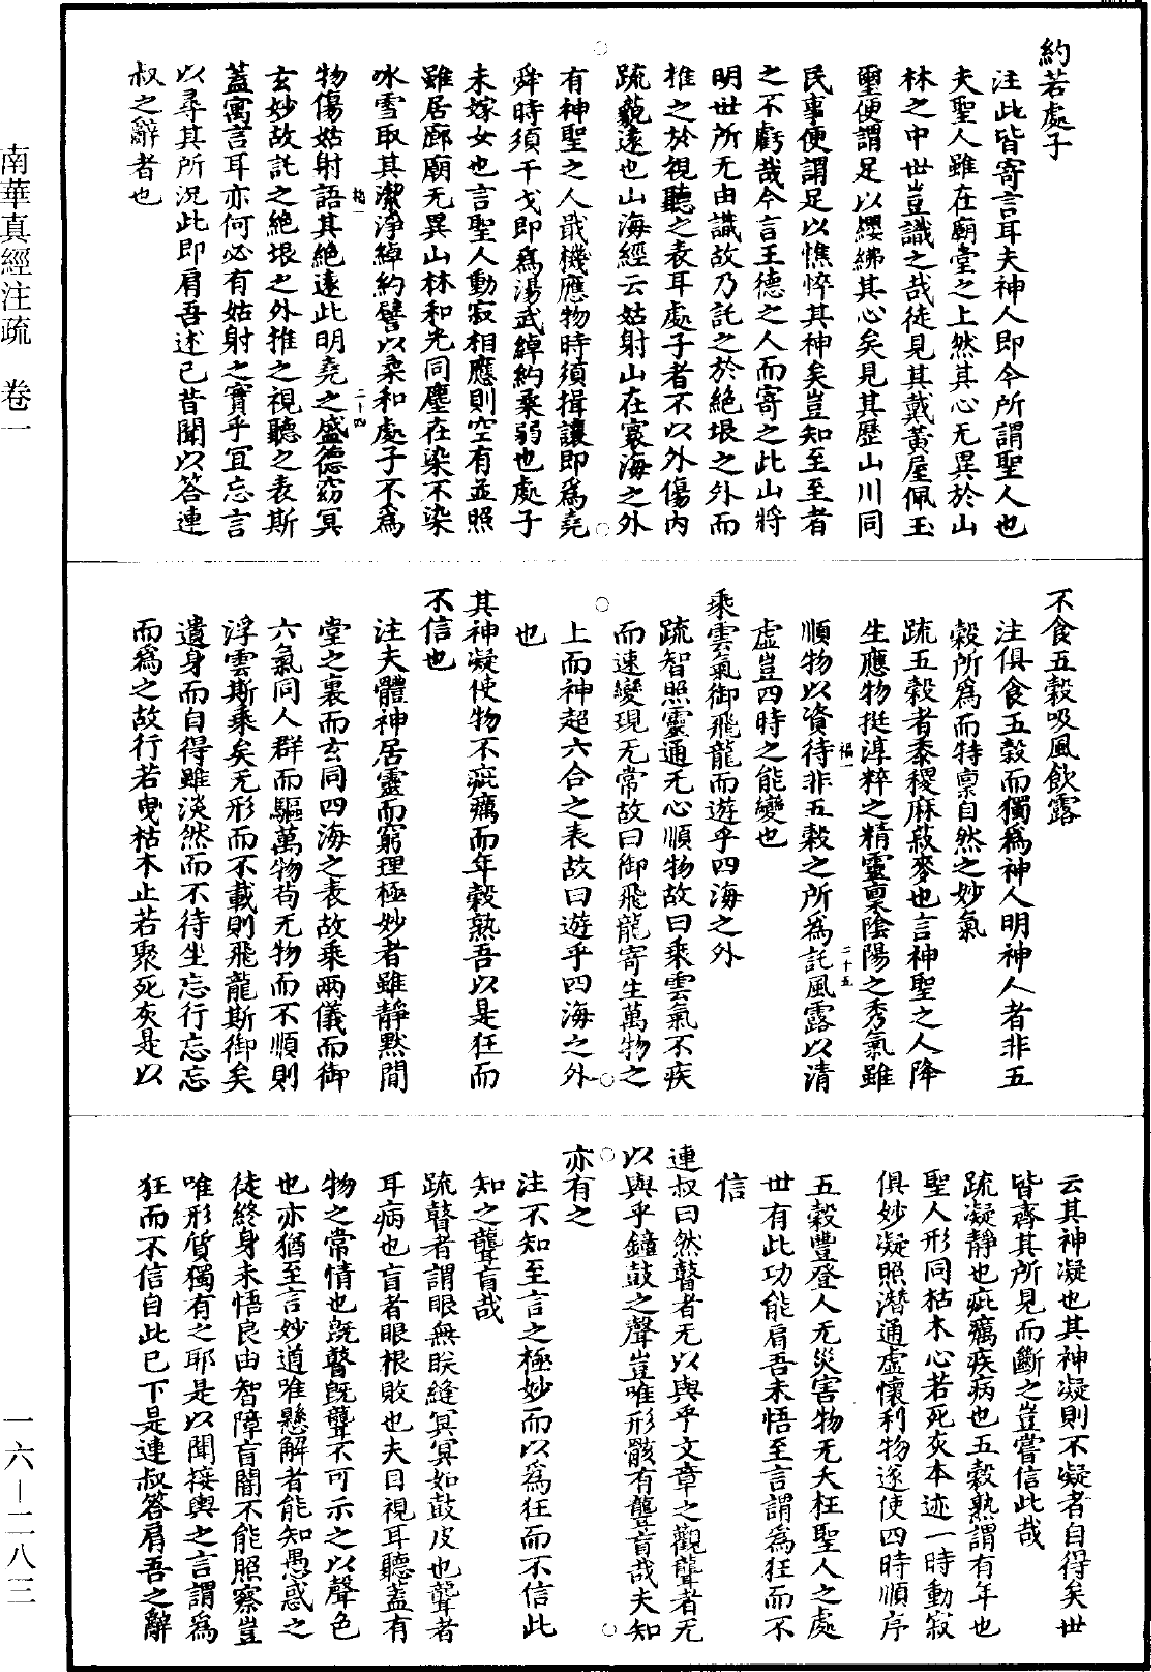 約若處子
注此皆寄言耳夫神人即今所謂聖人也
夫聖人雖在廟堂之上然其心无異於山
林之中世豈識之哉徒見其戴黃屋佩玉
璽便謂足以纓紼其心矣見其歷山川同
民事便謂足以憔悴其神矣豈知至至者
之不虧哉今言王德之人而寄之此山將
明世所无由識故乃託之於絕垠之外而
推之於視聽之表耳處子者不以外傷內
疏藐遠也山海經云姑射山在寰海之外
有神聖之人戢機應物時須揖讓即為堯
舜時須干戈即為湯武綽約柔弱也處子
未嫁女也言聖人動寂相應則空有並照
雖居廊廟无異山林和光同塵在染不染
冰雪取其潔淨綽約譬以柔和處子不為
物傷姑射語其絕遠此明堯之盛德窈冥
玄妙故託之絕垠之外推之視聽之表斯
蓋寓言耳亦何必有姑射之實乎宜忘言
以尋其所況此即肩吾述己昔聞以答連
叔之辭者也
二十四
不食五穀吸風飲露
注俱食五穀而獨為神人明神人者非五
穀所為而特稟自然之妙氣
疏五穀者黍稷麻菽麥也言神聖之人降
生應物挺淳粹之精靈稟陰陽之秀氣雖
順物以資待非五穀之所為託風露以清
虛豈四時之能變也
二十五
乘雲氣御飛龍而遊乎四海之外
疏智照靈通无心順物故曰乘雲氣不疾
而速變現无常故曰御飛龍寄生萬物之
上而神超六合之表故曰遊乎四海之外
也
其神凝使物不疵癘而年穀熟吾以是狂而
不信也
注夫體神居靈而窮理極妙者雖靜默間
堂之裏而玄同四海之表故乘兩儀而御
六氣同人群而驅萬物苟无物而不順則
浮雲斯乘矣无形而不載則飛龍斯御矣
遺身而自得雖淡然而不待坐忘行忘忘
而為之故行若曳枯木止若聚死灰是以
云其神凝也其神凝則不凝者自得矣世
皆齊其所見而斷之豈嘗信此哉
疏凝靜也疵癘疾病也五穀熟謂有年也
聖人形同枯木心若死灰本迹一時動寂
俱妙凝照潛通虛懷利物遂使四時順序
五穀豐登人无災害物无夭枉聖人之處
世有此功能肩吾未悟至言謂為狂而不
信
連叔曰然瞽者无以與乎文章之觀聾者无
以與乎鐘鼓之聲豈唯形骸有聾盲哉夫知
亦有之
注不知至言之極妙而以為狂而不信此
知之聾盲哉
疏瞽者謂眼無眹縫冥冥如鼓皮也聾者
耳病也盲者眼根敗也夫目視耳聽蓋有
物之常情也既瞽既聾不可示之以聲色
也亦猶至言妙道唯懸解者能知愚惑之
徒終身未悟良由智障盲闇不能照察豈
唯形質獨有之耶是以聞接輿之言謂為
狂而不信自此已下是連叔答肩吾之辭
南華真經注疏　卷一
一六—二八三